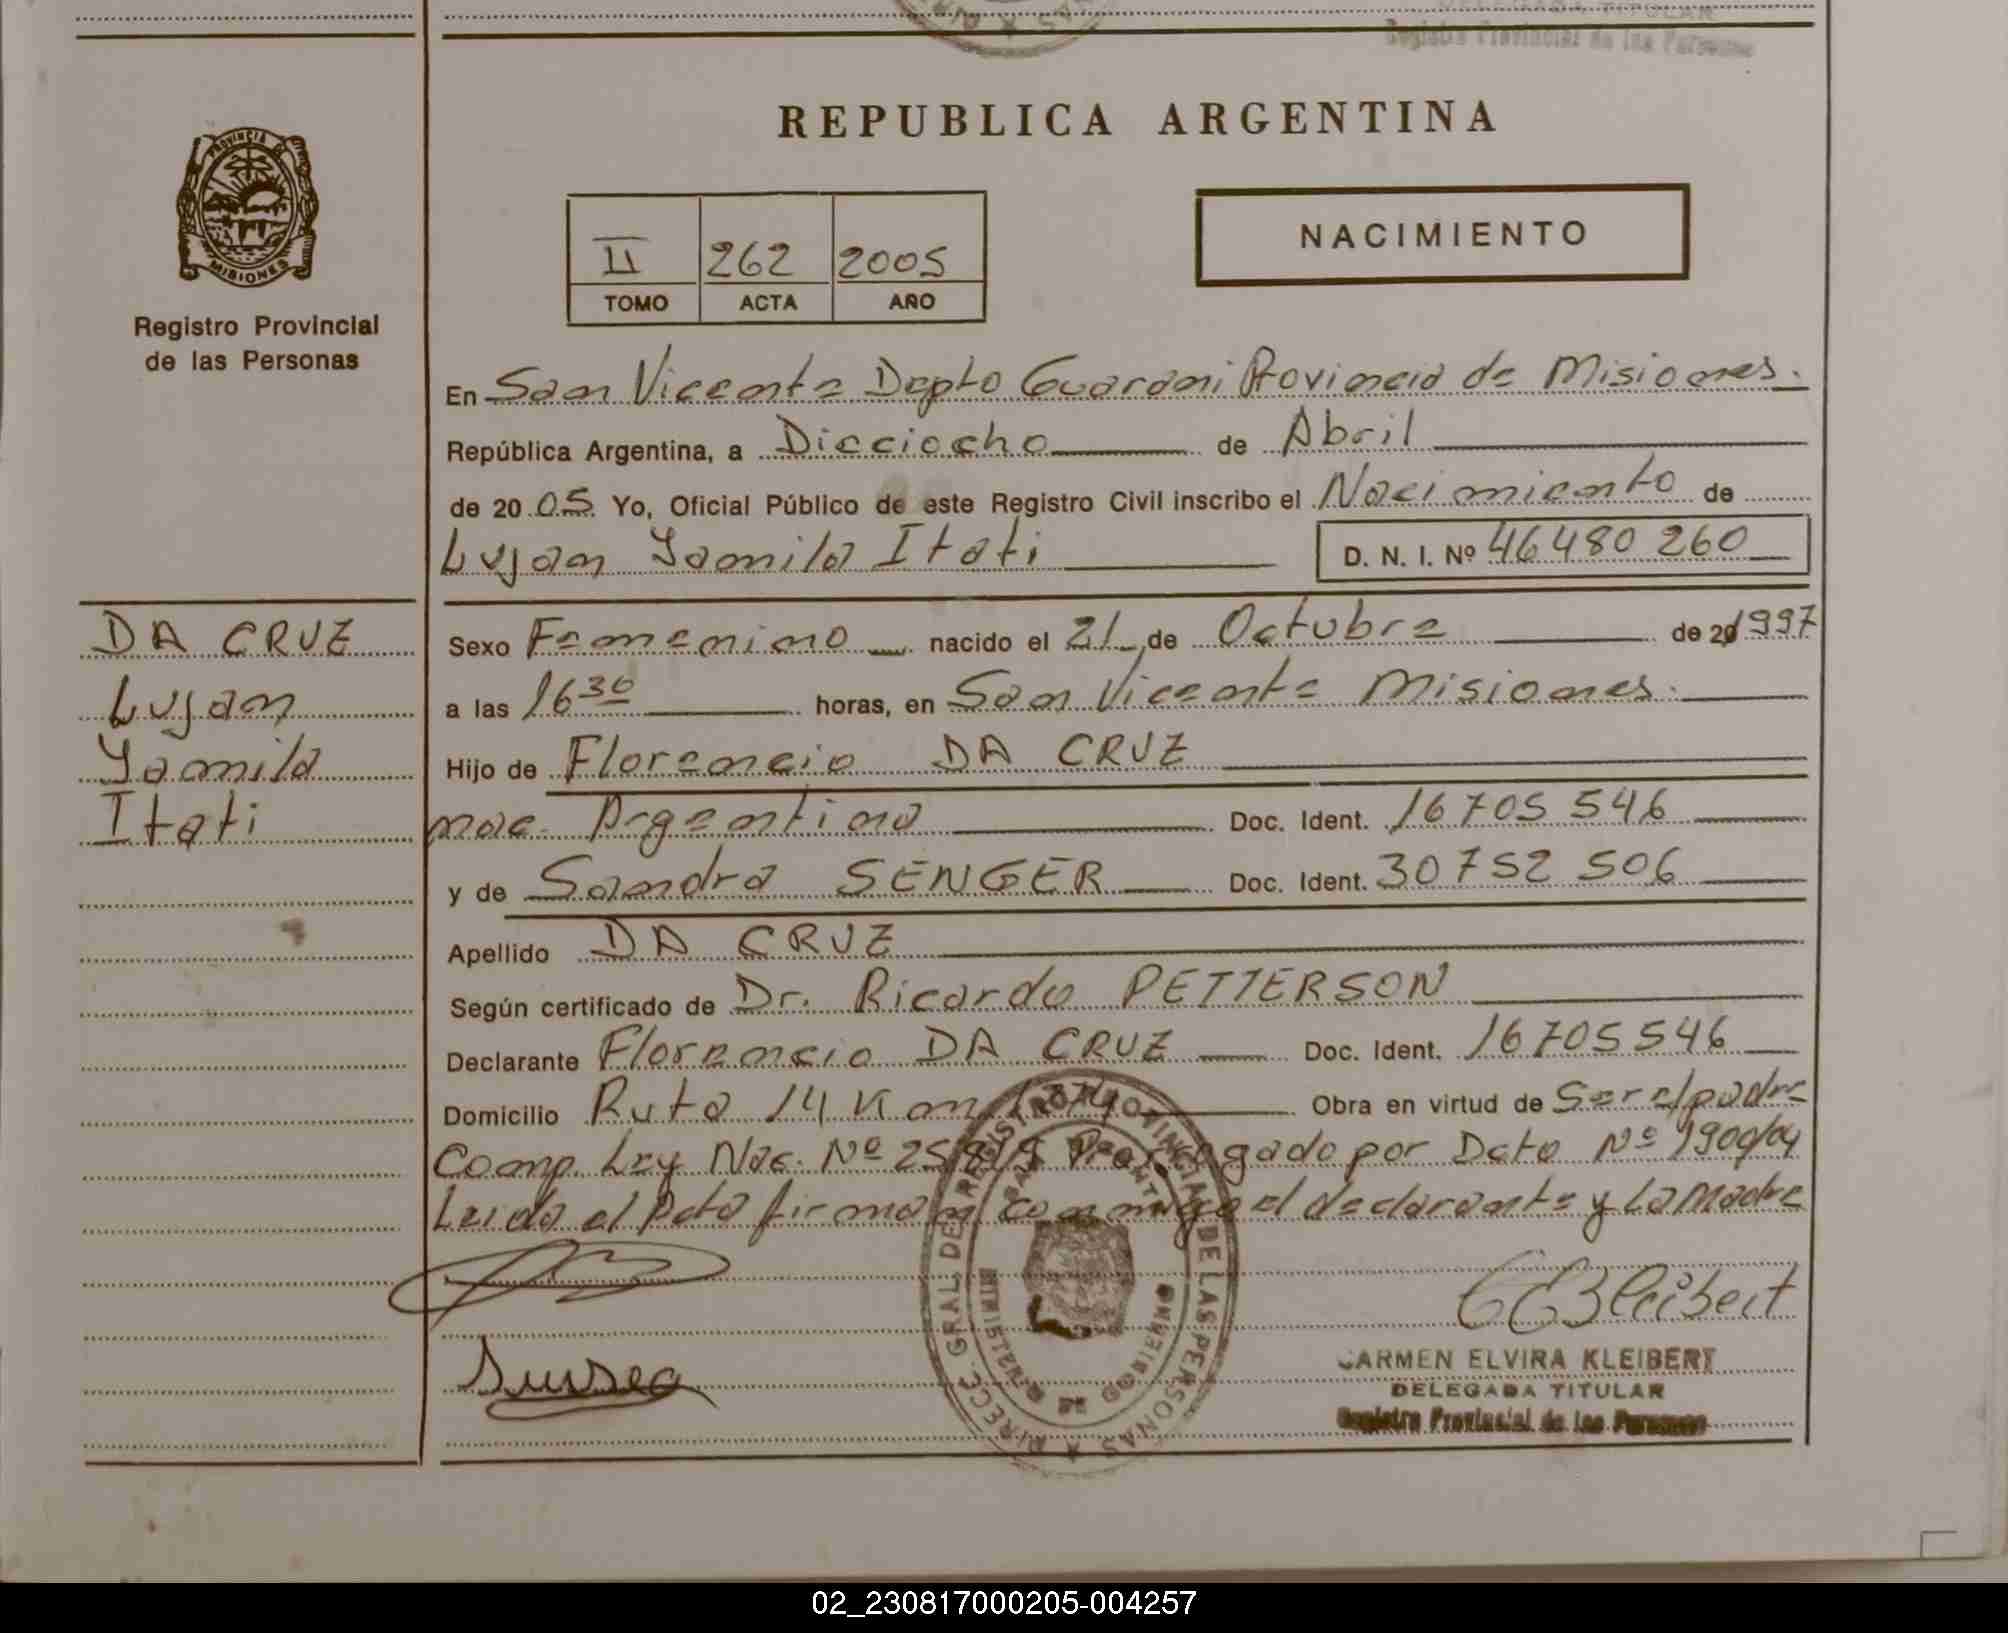 DELEGADA TITULAR
Registro Provincial de las Personas
PROVINCIA DE
MISIONES
Registro Provincial
de las Personas
REPUBLICA ARGENTINA
II 262 2005
TOMO ACTA AÑO
NACIMIENTO
En San Vicente Depto Guarani Provincia de Misiones.
República Argentina, a Dieciocho de Abril
de 2005 Yo, Oficial Público de este Registro Civil inscribo el Nacimiento de
Lujan Yamila Itati D. N. I. Nº 46480260
DA CRUZ
Lujan
Yamila
Itati
Sexo Femenino nacido el 21 de Octubre de 20 1997
a las 16 30 horas, en San Vicente Misiones.
Hijo de Florencio DA CRUZ
nac. Argentina Doc. Ident. 16705546
y de Sandra SENGER Doc. Ident. 30752506
Apellido DA CRUZ
Según certificado de Dr. Ricardo PETTERSON
Declarante Florencio DA CRUZ Doc. Ident. 16705546
Domicilio Ruta 14 Km Obra en virtud de Ser el padre
Comp. Ley Nac. Nº 25819 Prorrogado por Dcto Nº 190/04
Leida el Acta firman conmigo el declarante y La Madre
DIRECC. GRAL DE REGISTRO PROVINCIAL DE LAS PERSONAS
SAN VICENTE
MINISTERIO DE GOBIERNO
CEKleibert
CARMEN ELVIRA KLEIBERT
DELEGADA TITULAR
Registro Provincial de las Personas
02_230817000205-004257